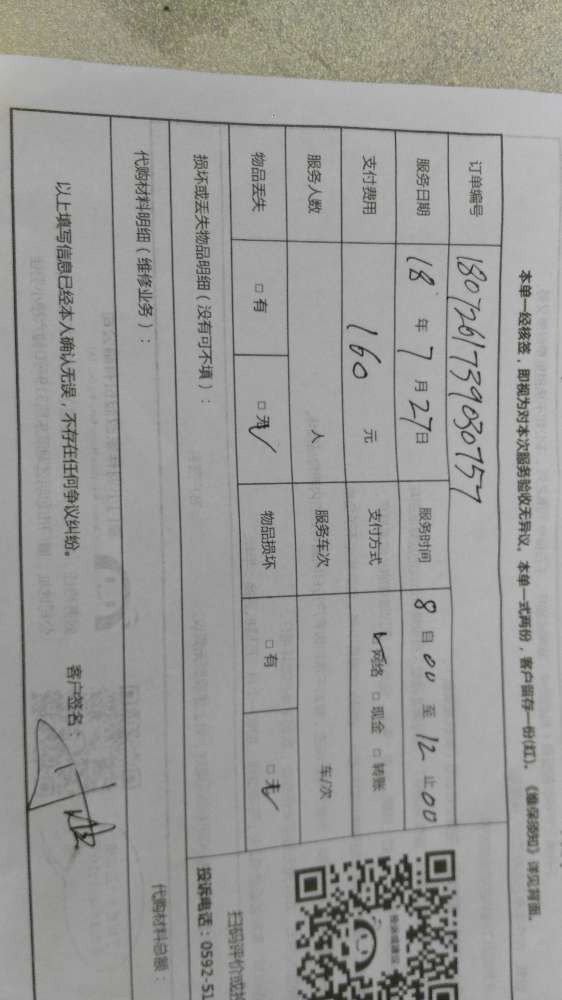 本单一经核签，即视为对本次服务验收无异议。本单一式两份，客户留存一份(红)。《维保须知》详见背面。
订单编号 1807261739030757
服务日期 18 年 7 月 27 日 服务时间 8 自 00 至 12 止 00
支付费用 160 元 支付方式 ☑网络 □现金 □转账
服务人数 人 服务车次 车/次
物品丢失 □有 ☑无 物品损坏 □有 ☑无
损坏或丢失物品明细（没有可不填）：
代购材料明细（维修业务）： 代购材料总额：
以上填写信息已经本人确认无误，不存在任何争议纠纷。 客户签名：
投诉或建议
扫码评价或投
投诉电话：0592-51